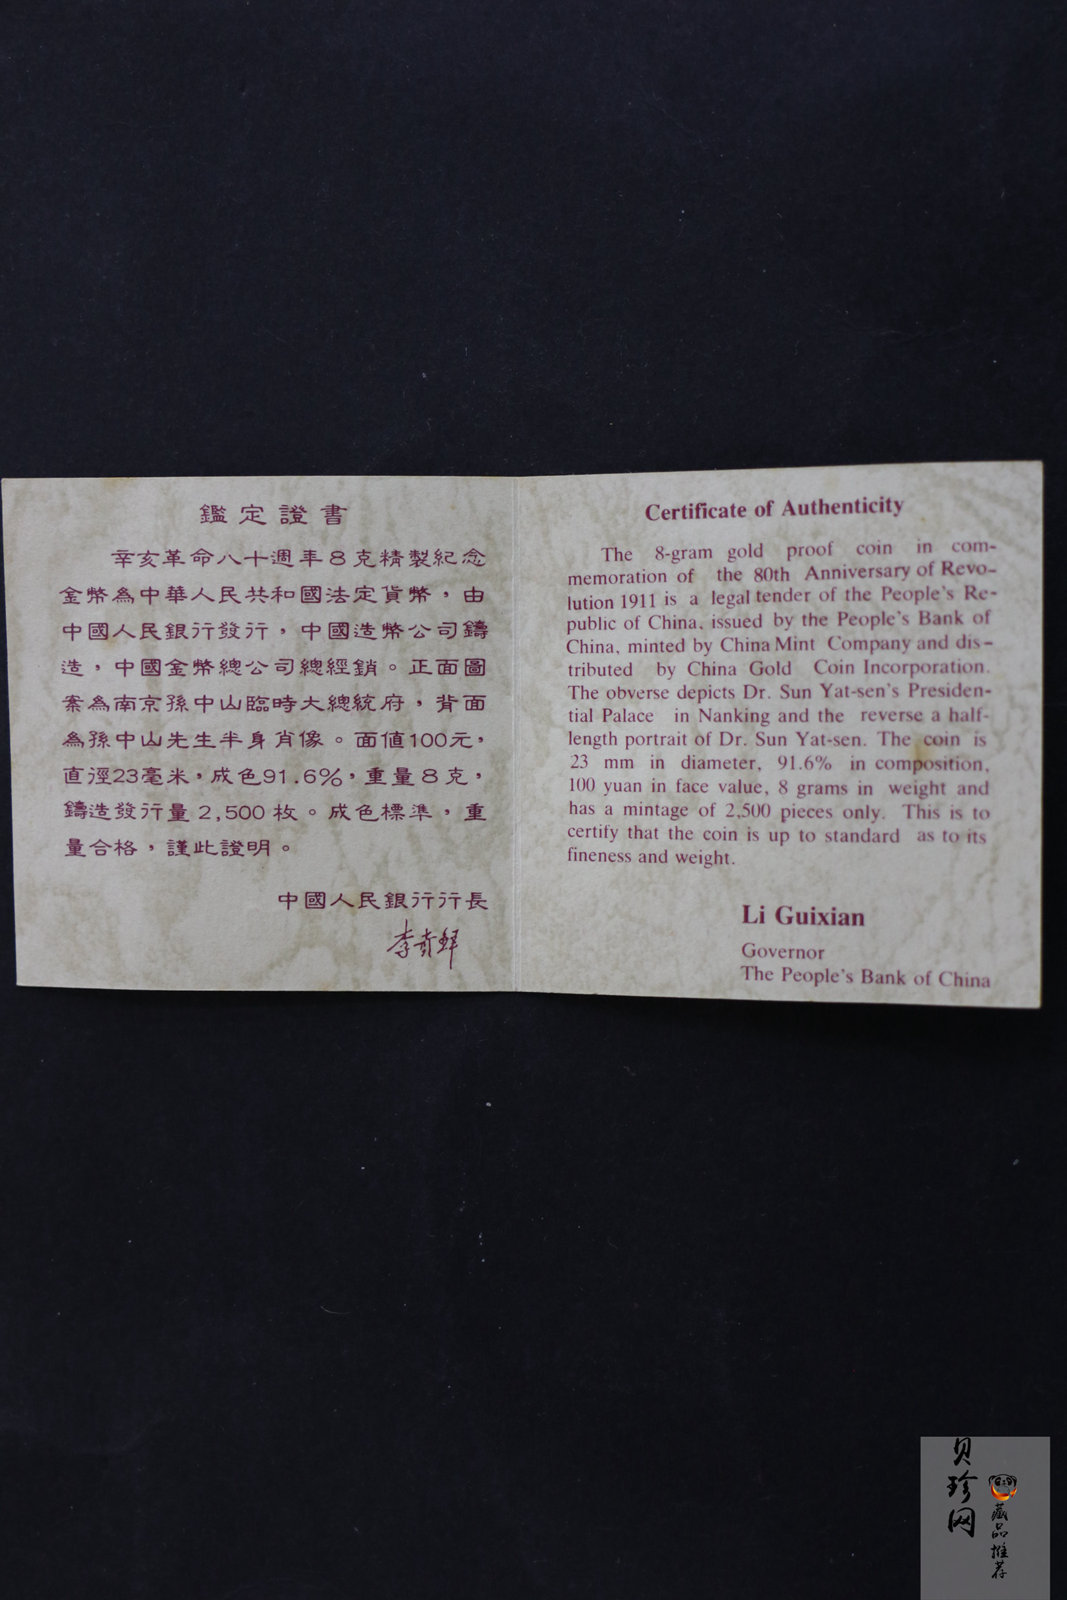 鑑定證書
辛亥革命八十週年8克精製紀念
金幣為中華人民共和國法定貨幣，由
中國人民銀行發行，中國造幣公司鑄
造，中國金幣總公司總經銷。正面圖
案為南京孫中山臨時大總統府，背面
為孫中山先生半身肖像。面值100元，
直徑23毫米，成色91.6%，重量8克，
鑄造發行量2,500枚。成色標準，重
量合格，謹此證明。
中國人民銀行行長
李贵鲜
Certificate of Authenticity
The 8-gram gold proof coin in com-
memoration of the 80th Anniversary of Revo-
lution 1911 is a legal tender of the People's Re-
public of China, issued by the People's Bank of
China, minted by China Mint Company and dis-
tributed by China Gold Coin Incorporation.
The obverse depicts Dr. Sun Yat-sen's Presiden-
tial Palace in Nanking and the reverse a half-
length portrait of Dr. Sun Yat-sen. The coin is
23 mm in diameter, 91.6% in composition,
100 yuan in face value, 8 grams in weight and
has a mintage of 2,500 pieces only. This is to
certify that the coin is up to standard as to its
fineness and weight.
Li Guixian
Governor
The People's Bank of China
贝珍网
藏品推荐